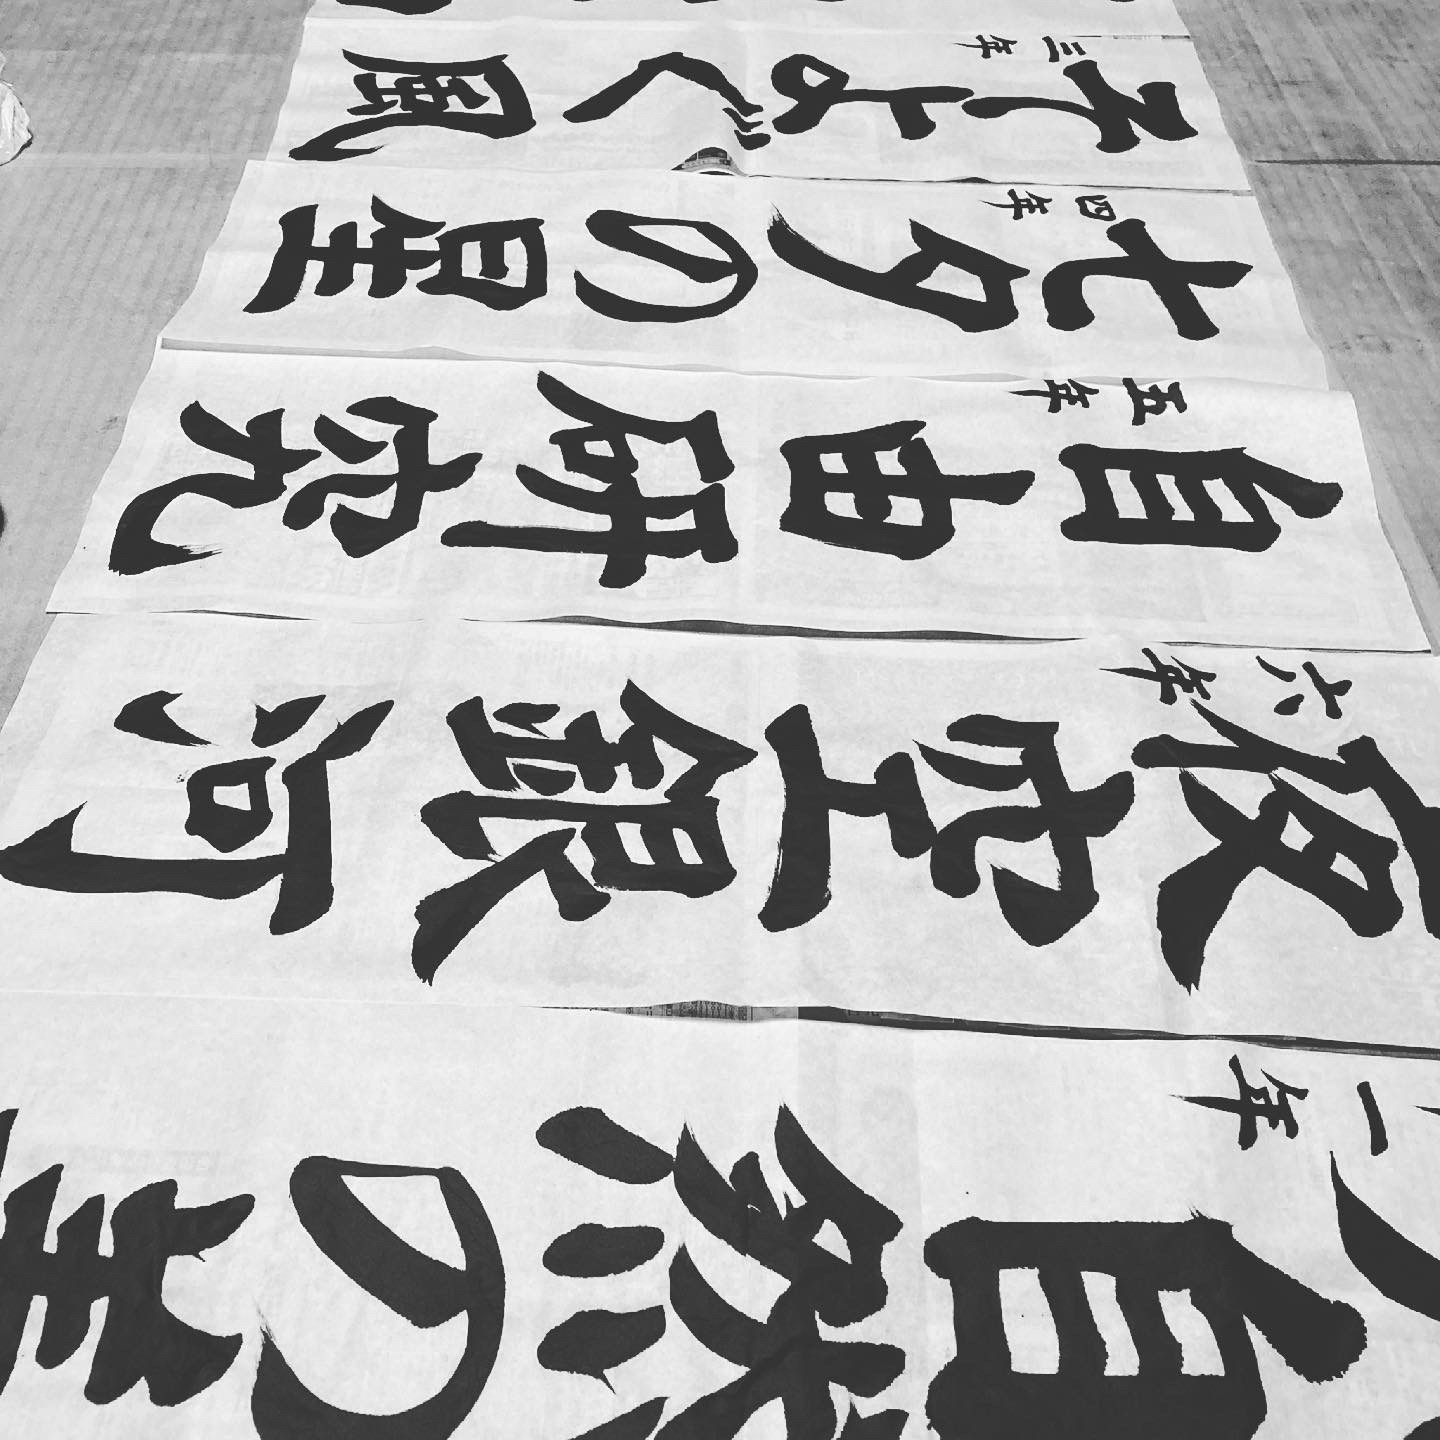 三年
そよぐ風
四年
七夕の星
五年
自由研究
六年
夜空銀河
一年
自然の美